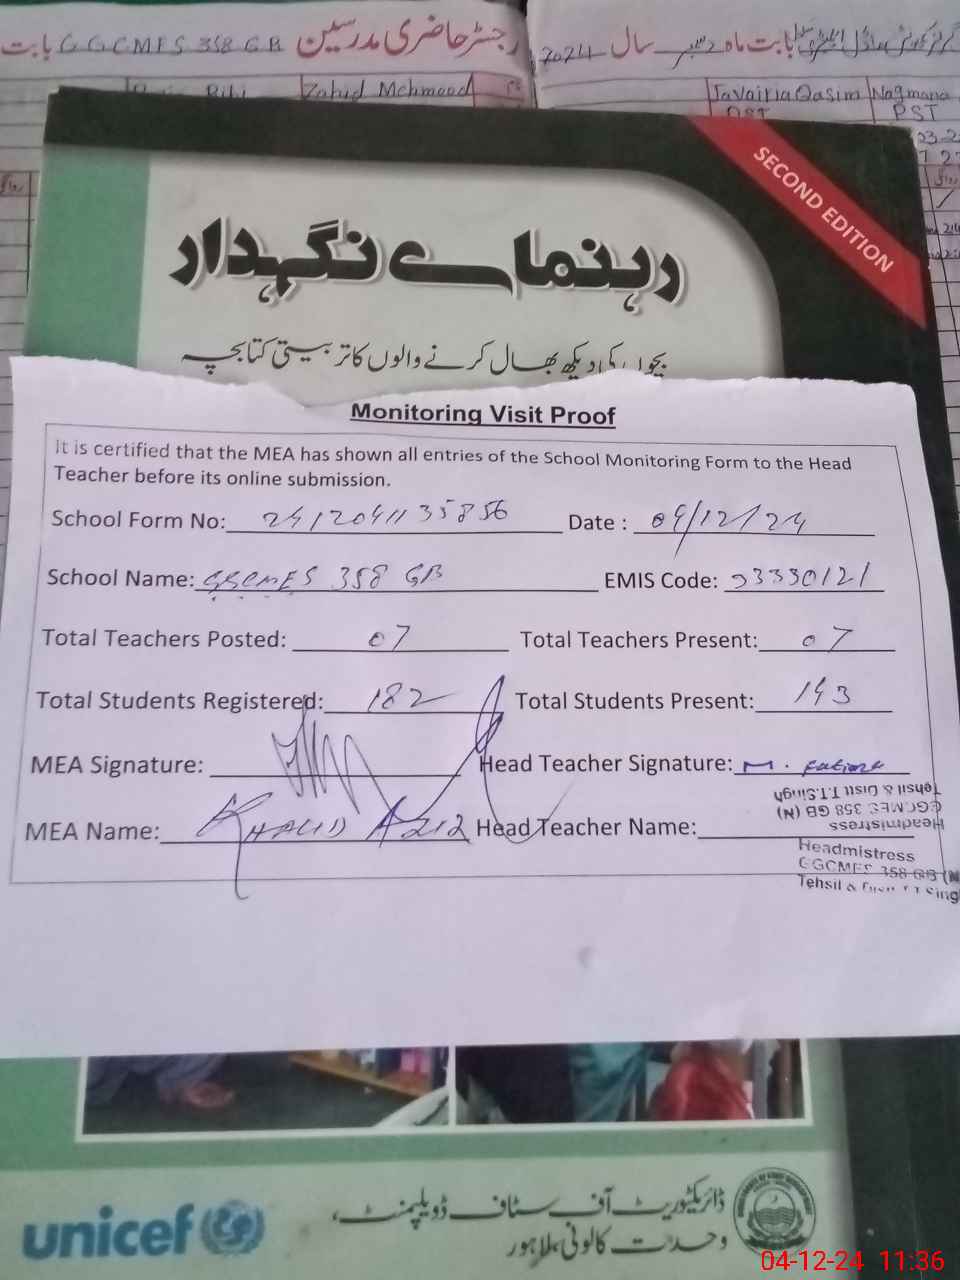 رجسٹر حاضری مدرسین GGCMES 358 GB بابت
بابت ماہ دسمبر سال 2024
Bibi Zahid Mehmood
Javairia Qasim Nagmana
PST
SECOND EDITION
رہنمائے نگہدار
بچوں کی دیکھ بھال کرنے والوں کا تربیتی کتابچہ
Monitoring Visit Proof
It is certified that the MEA has shown all entries of the School Monitoring Form to the Head
Teacher before its online submission.
School Form No: 2412041135856 Date : 04/12/24
School Name: GGCMES 358 GB EMIS Code: 33330121
Total Teachers Posted: 07 Total Teachers Present: 07
Total Students Registered: 182 Total Students Present: 143
MEA Signature: Head Teacher Signature: M. Fatima
MEA Name: KHALID AZIZ Head Teacher Name:
Headmistress
GGCMES 358 GB (N)
Tehsil & Distt T.T.Singh
Headmistress
GGCMES 358 GB (N
Tehsil & Distt T.T Singh
ڈائریکٹوریٹ آف سٹاف ڈویلپمنٹ،
وحدت کالونی، لاہور
unicef
04-12-24 11:36